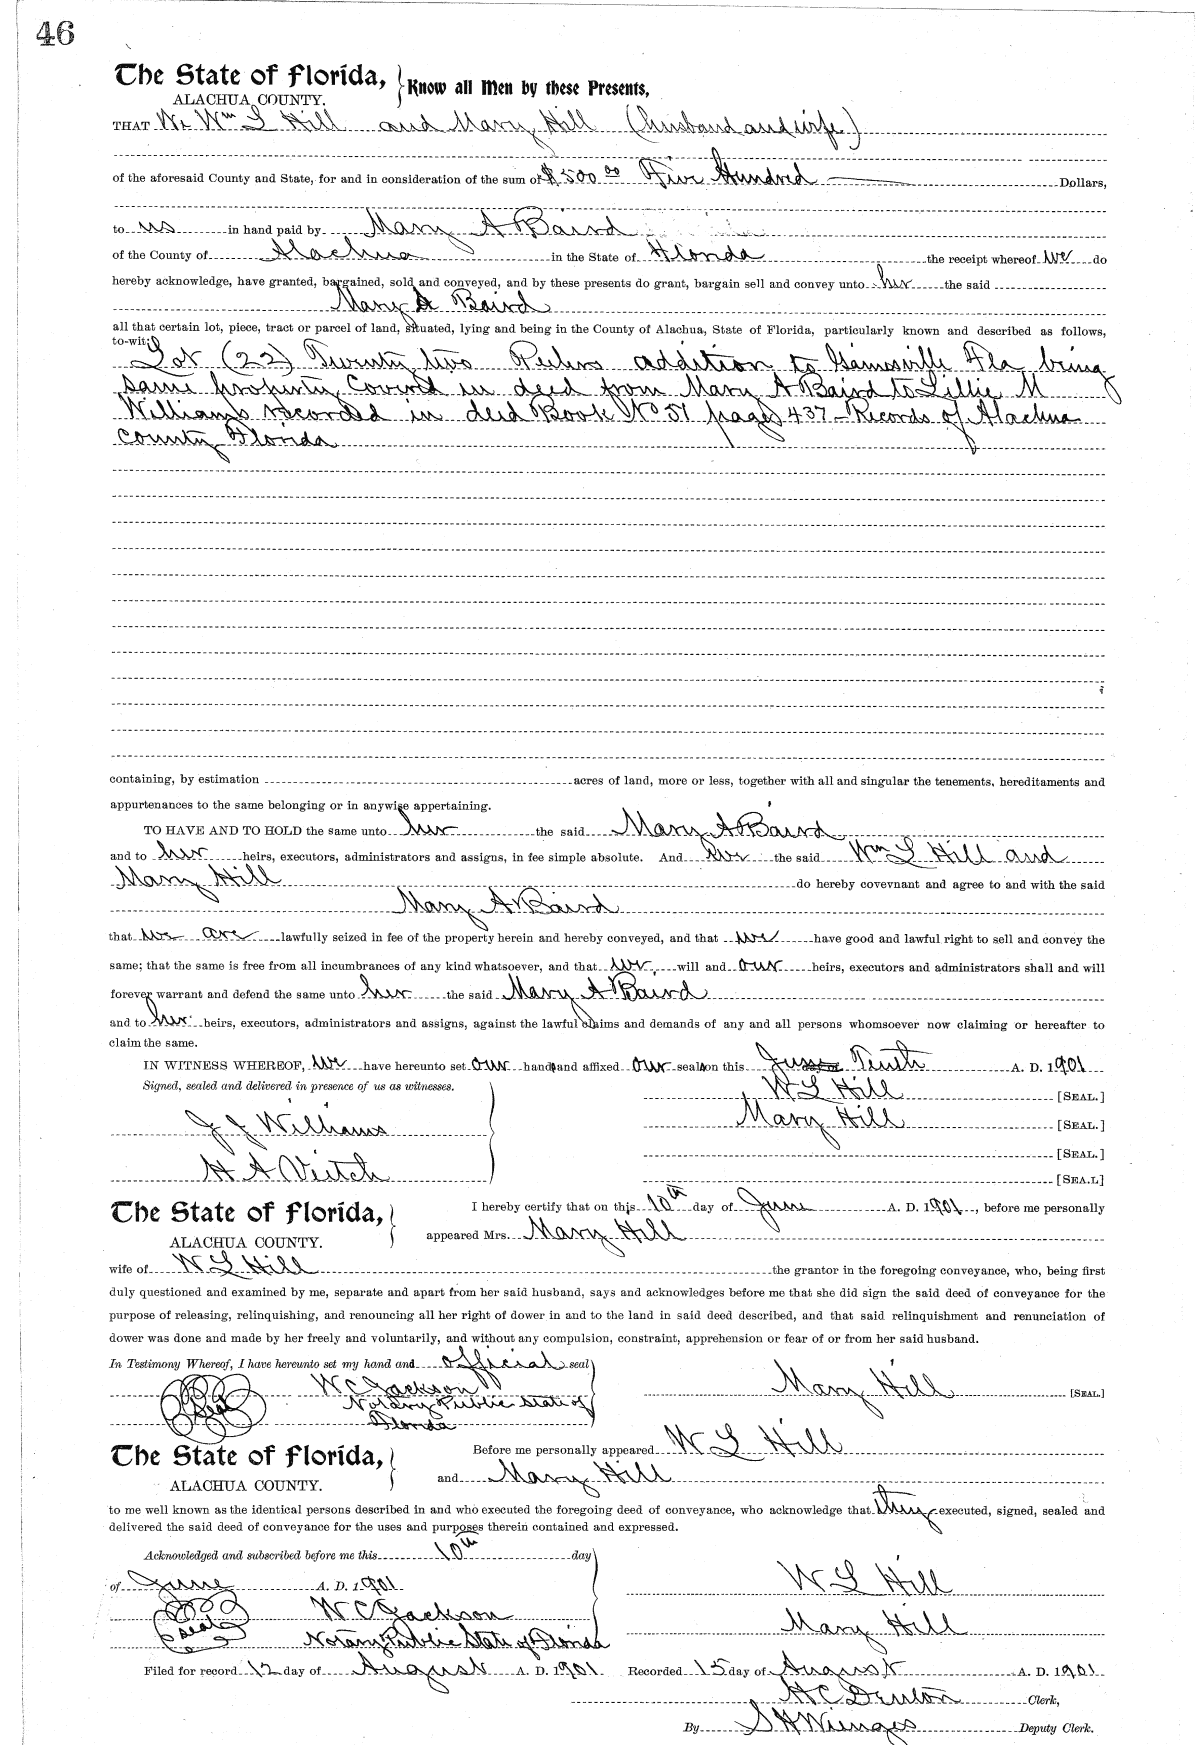 46
The State of Florida, Know all Men by these Presents,
ALACHUA COUNTY.
THAT We Wm L Hill and Mary Hill (husband and wife)
of the aforesaid County and State, for and in consideration of the sum of $500 00 Five Hundred Dollars,
to us in hand paid by Mary A Baird
of the County of Alachua in the State of Florida the receipt whereof we do
hereby acknowledge, have granted, bargained, sold and conveyed, and by these presents do grant, bargain sell and convey unto her the said
Mary A Baird
all that certain lot, piece, tract or parcel of land, situated, lying and being in the County of Alachua, State of Florida, particularly known and described as follows,
to-wit:
Lot (22) Twenty two addition to Gainesville Fla being
same property Covered in deed from Mary A Baird to Lillie M
Williams recorded in deed Book No 51 pages 437 - Records of Alachua
County Florida
containing, by estimation acres of land, more or less, together with all and singular the tenements, hereditaments and
appurtenances to the same belonging or in anywise appertaining.
TO HAVE AND TO HOLD the same unto her the said Mary A Baird
and to her heirs, executors, administrators and assigns, in fee simple absolute. And we the said Wm L Hill and
Mary Hill do hereby covevnant and agree to and with the said
Mary A Baird
that we are lawfully seized in fee of the property herein and hereby conveyed, and that we have good and lawful right to sell and convey the
same; that the same is free from all incumbrances of any kind whatsoever, and that we will and our heirs, executors and administrators shall and will
forever warrant and defend the same unto her the said Mary A Baird
and to her heirs, executors, administrators and assigns, against the lawful claims and demands of any and all persons whomsoever now claiming or hereafter to
claim the same.
IN WITNESS WHEREOF, we have hereunto set our hands and affixed our seals on this June Tenth A. D. 1901
Signed, sealed and delivered in presence of us as witnesses.
W L Hill [SEAL.]
Mary Hill [SEAL.]
J J Williams
[SEAL.]
H A Veitch
[SEA.L]
The State of Florida,
ALACHUA COUNTY.
I hereby certify that on this 10th day of June A. D. 1901, before me personally
appeared Mrs. Mary Hill
wife of W L Hill the grantor in the foregoing conveyance, who, being first
duly questioned and examined by me, separate and apart from her said husband, says and acknowledges before me that she did sign the said deed of conveyance for the
purpose of releasing, relinquishing, and renouncing all her right of dower in and to the land in said deed described, and that said relinquishment and renunciation of
dower was done and made by her freely and voluntarily, and without any compulsion, constraint, apprehension or fear of or from her said husband.
In Testimony Whereof, I have hereunto set my hand and official seal
Seal W C Jackson Mary Hill [SEAL.]
Notary Public State of
Florida
The State of Florida,
ALACHUA COUNTY.
Before me personally appeared W L Hill
and Mary Hill
to me well known as the identical persons described in and who executed the foregoing deed of conveyance, who acknowledge that they executed, signed, sealed and
delivered the said deed of conveyance for the uses and purposes therein contained and expressed.
Acknowledged and subscribed before me this 10th day
of June A. D. 1901
W L Hill
Seal W C Jackson
Mary Hill
Notary Public State of Florida
Filed for record 12 day of August A. D. 1901 Recorded 15 day of August A. D. 1901
H C Denton Clerk,
By S H Wienges Deputy Clerk.